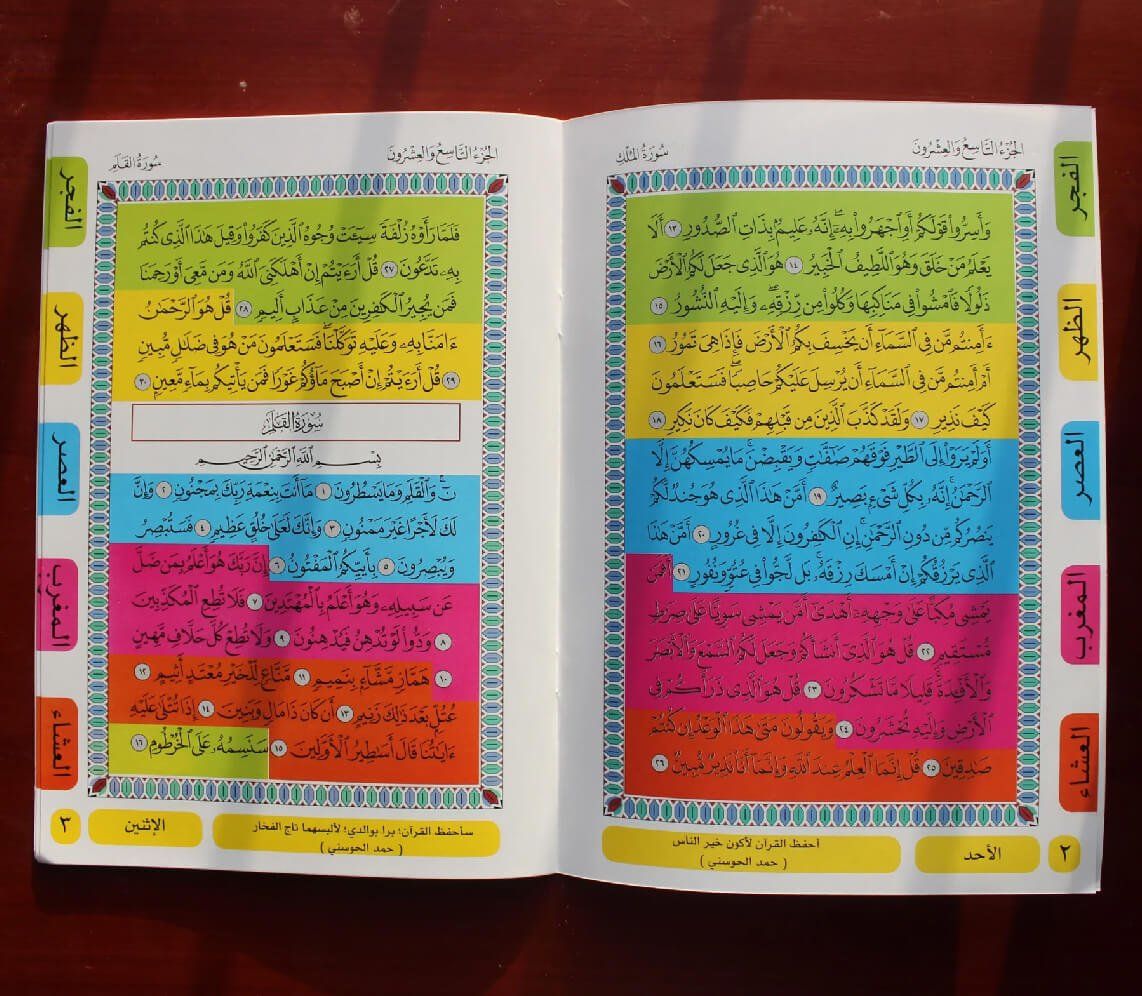 الجزء التاسع والعشرون
سورة الملك
وَأَسِرُّوا۟ قَوْلَكُمْ أَوِ ٱجْهَرُوا۟ بِهِۦٓ ۖ إِنَّهُۥ عَلِيمٌۢ بِذَاتِ ٱلصُّدُورِ ١٣ أَلَا
يَعْلَمُ مَنْ خَلَقَ وَهُوَ ٱللَّطِيفُ ٱلْخَبِيرُ ١٤ هُوَ ٱلَّذِى جَعَلَ لَكُمُ ٱلْأَرْضَ
ذَلُولًا فَٱمْشُوا۟ فِى مَنَاكِبِهَا وَكُلُوا۟ مِن رِّزْقِهِۦ ۖ وَإِلَيْهِ ٱلنُّشُورُ ١٥
ءَأَمِنتُم مَّن فِى ٱلسَّمَآءِ أَن يَخْسِفَ بِكُمُ ٱلْأَرْضَ فَإِذَا هِىَ تَمُورُ ١٦
أَمْ أَمِنتُم مَّن فِى ٱلسَّمَآءِ أَن يُرْسِلَ عَلَيْكُمْ حَاصِبًا ۖ فَسَتَعْلَمُونَ
كَيْفَ نَذِيرِ ١٧ وَلَقَدْ كَذَّبَ ٱلَّذِينَ مِن قَبْلِهِمْ فَكَيْفَ كَانَ نَكِيرِ ١٨
أَوَلَمْ يَرَوْا۟ إِلَى ٱلطَّيْرِ فَوْقَهُمْ صَٰٓفَّٰتٍ وَيَقْبِضْنَ ۚ مَا يُمْسِكُهُنَّ إِلَّا
ٱلرَّحْمَٰنُ ۚ إِنَّهُۥ بِكُلِّ شَىْءٍۭ بَصِيرٌ ١٩ أَمَّنْ هَٰذَا ٱلَّذِى هُوَ جُندٌ لَّكُمْ
يَنصُرُكُم مِّن دُونِ ٱلرَّحْمَٰنِ ۚ إِنِ ٱلْكَٰفِرُونَ إِلَّا فِى غُرُورٍ ٢٠ أَمَّنْ هَٰذَا
ٱلَّذِى يَرْزُقُكُمْ إِنْ أَمْسَكَ رِزْقَهُۥ ۚ بَل لَّجُّوا۟ فِى عُتُوٍّ وَنُفُورٍ ٢١ أَفَمَن
يَمْشِى مُكِبًّا عَلَىٰ وَجْهِهِۦٓ أَهْدَىٰٓ أَمَّن يَمْشِى سَوِيًّا عَلَىٰ صِرَٰطٍ
مُّسْتَقِيمٍ ٢٢ قُلْ هُوَ ٱلَّذِىٓ أَنشَأَكُمْ وَجَعَلَ لَكُمُ ٱلسَّمْعَ وَٱلْأَبْصَٰرَ
وَٱلْأَفْـِٔدَةَ ۖ قَلِيلًا مَّا تَشْكُرُونَ ٢٣ قُلْ هُوَ ٱلَّذِى ذَرَأَكُمْ فِى
ٱلْأَرْضِ وَإِلَيْهِ تُحْشَرُونَ ٢٤ وَيَقُولُونَ مَتَىٰ هَٰذَا ٱلْوَعْدُ إِن كُنتُمْ
صَٰدِقِينَ ٢٥ قُلْ إِنَّمَا ٱلْعِلْمُ عِندَ ٱللَّهِ وَإِنَّمَآ أَنَا۠ نَذِيرٌ مُّبِينٌ ٢٦
الفجر
الظهر
العصر
المغرب
العشاء
٢
الأحد
أحفظ القرآن لأكون خير الناس
( حمد الحوسني )
الجزء التاسع والعشرون
سورة القلم
فَلَمَّا رَأَوْهُ زُلْفَةً سِيٓـَٔتْ وُجُوهُ ٱلَّذِينَ كَفَرُوا۟ وَقِيلَ هَٰذَا ٱلَّذِى كُنتُم
بِهِۦ تَدَّعُونَ ٢٧ قُلْ أَرَءَيْتُمْ إِنْ أَهْلَكَنِىَ ٱللَّهُ وَمَن مَّعِىَ أَوْ رَحِمَنَا
فَمَن يُجِيرُ ٱلْكَٰفِرِينَ مِنْ عَذَابٍ أَلِيمٍ ٢٨ قُلْ هُوَ ٱلرَّحْمَٰنُ
ءَامَنَّا بِهِۦ وَعَلَيْهِ تَوَكَّلْنَا ۖ فَسَتَعْلَمُونَ مَنْ هُوَ فِى ضَلَٰلٍ مُّبِينٍ
٢٩ قُلْ أَرَءَيْتُمْ إِنْ أَصْبَحَ مَآؤُكُمْ غَوْرًا فَمَن يَأْتِيكُم بِمَآءٍ مَّعِينٍۭ ٣٠
سورة القلم
بِسْمِ ٱللَّهِ ٱلرَّحْمَٰنِ ٱلرَّحِيمِ
نٓ ۚ وَٱلْقَلَمِ وَمَا يَسْطُرُونَ ١ مَآ أَنتَ بِنِعْمَةِ رَبِّكَ بِمَجْنُونٍ ٢ وَإِنَّ
لَكَ لَأَجْرًا غَيْرَ مَمْنُونٍ ٣ وَإِنَّكَ لَعَلَىٰ خُلُقٍ عَظِيمٍ ٤ فَسَتُبْصِرُ
وَيُبْصِرُونَ ٥ بِأَييِّكُمُ ٱلْمَفْتُونُ ٦ إِنَّ رَبَّكَ هُوَ أَعْلَمُ بِمَن ضَلَّ
عَن سَبِيلِهِۦ وَهُوَ أَعْلَمُ بِٱلْمُهْتَدِينَ ٧ فَلَا تُطِعِ ٱلْمُكَذِّبِينَ
٨ وَدُّوا۟ لَوْ تُدْهِنُ فَيُدْهِنُونَ ٩ وَلَا تُطِعْ كُلَّ حَلَّافٍ مَّهِينٍ
١٠ هَمَّازٍ مَّشَّآءٍۭ بِنَمِيمٍ ١١ مَّنَّاعٍ لِّلْخَيْرِ مُعْتَدٍ أَثِيمٍ ١٢
عُتُلٍّۭ بَعْدَ ذَٰلِكَ زَنِيمٍ ١٣ أَن كَانَ ذَا مَالٍ وَبَنِينَ ١٤ إِذَا تُتْلَىٰ عَلَيْهِ
ءَايَٰتُنَا قَالَ أَسَٰطِيرُ ٱلْأَوَّلِينَ ١٥ سَنَسِمُهُۥ عَلَى ٱلْخُرْطُومِ ١٦
الفجر
الظهر
العصر
المغرب
العشاء
سأحفظ القرآن؛ برا بوالدي؛ لألبسهما تاج الفخار
( حمد الحوسني )
الإثنين
٣